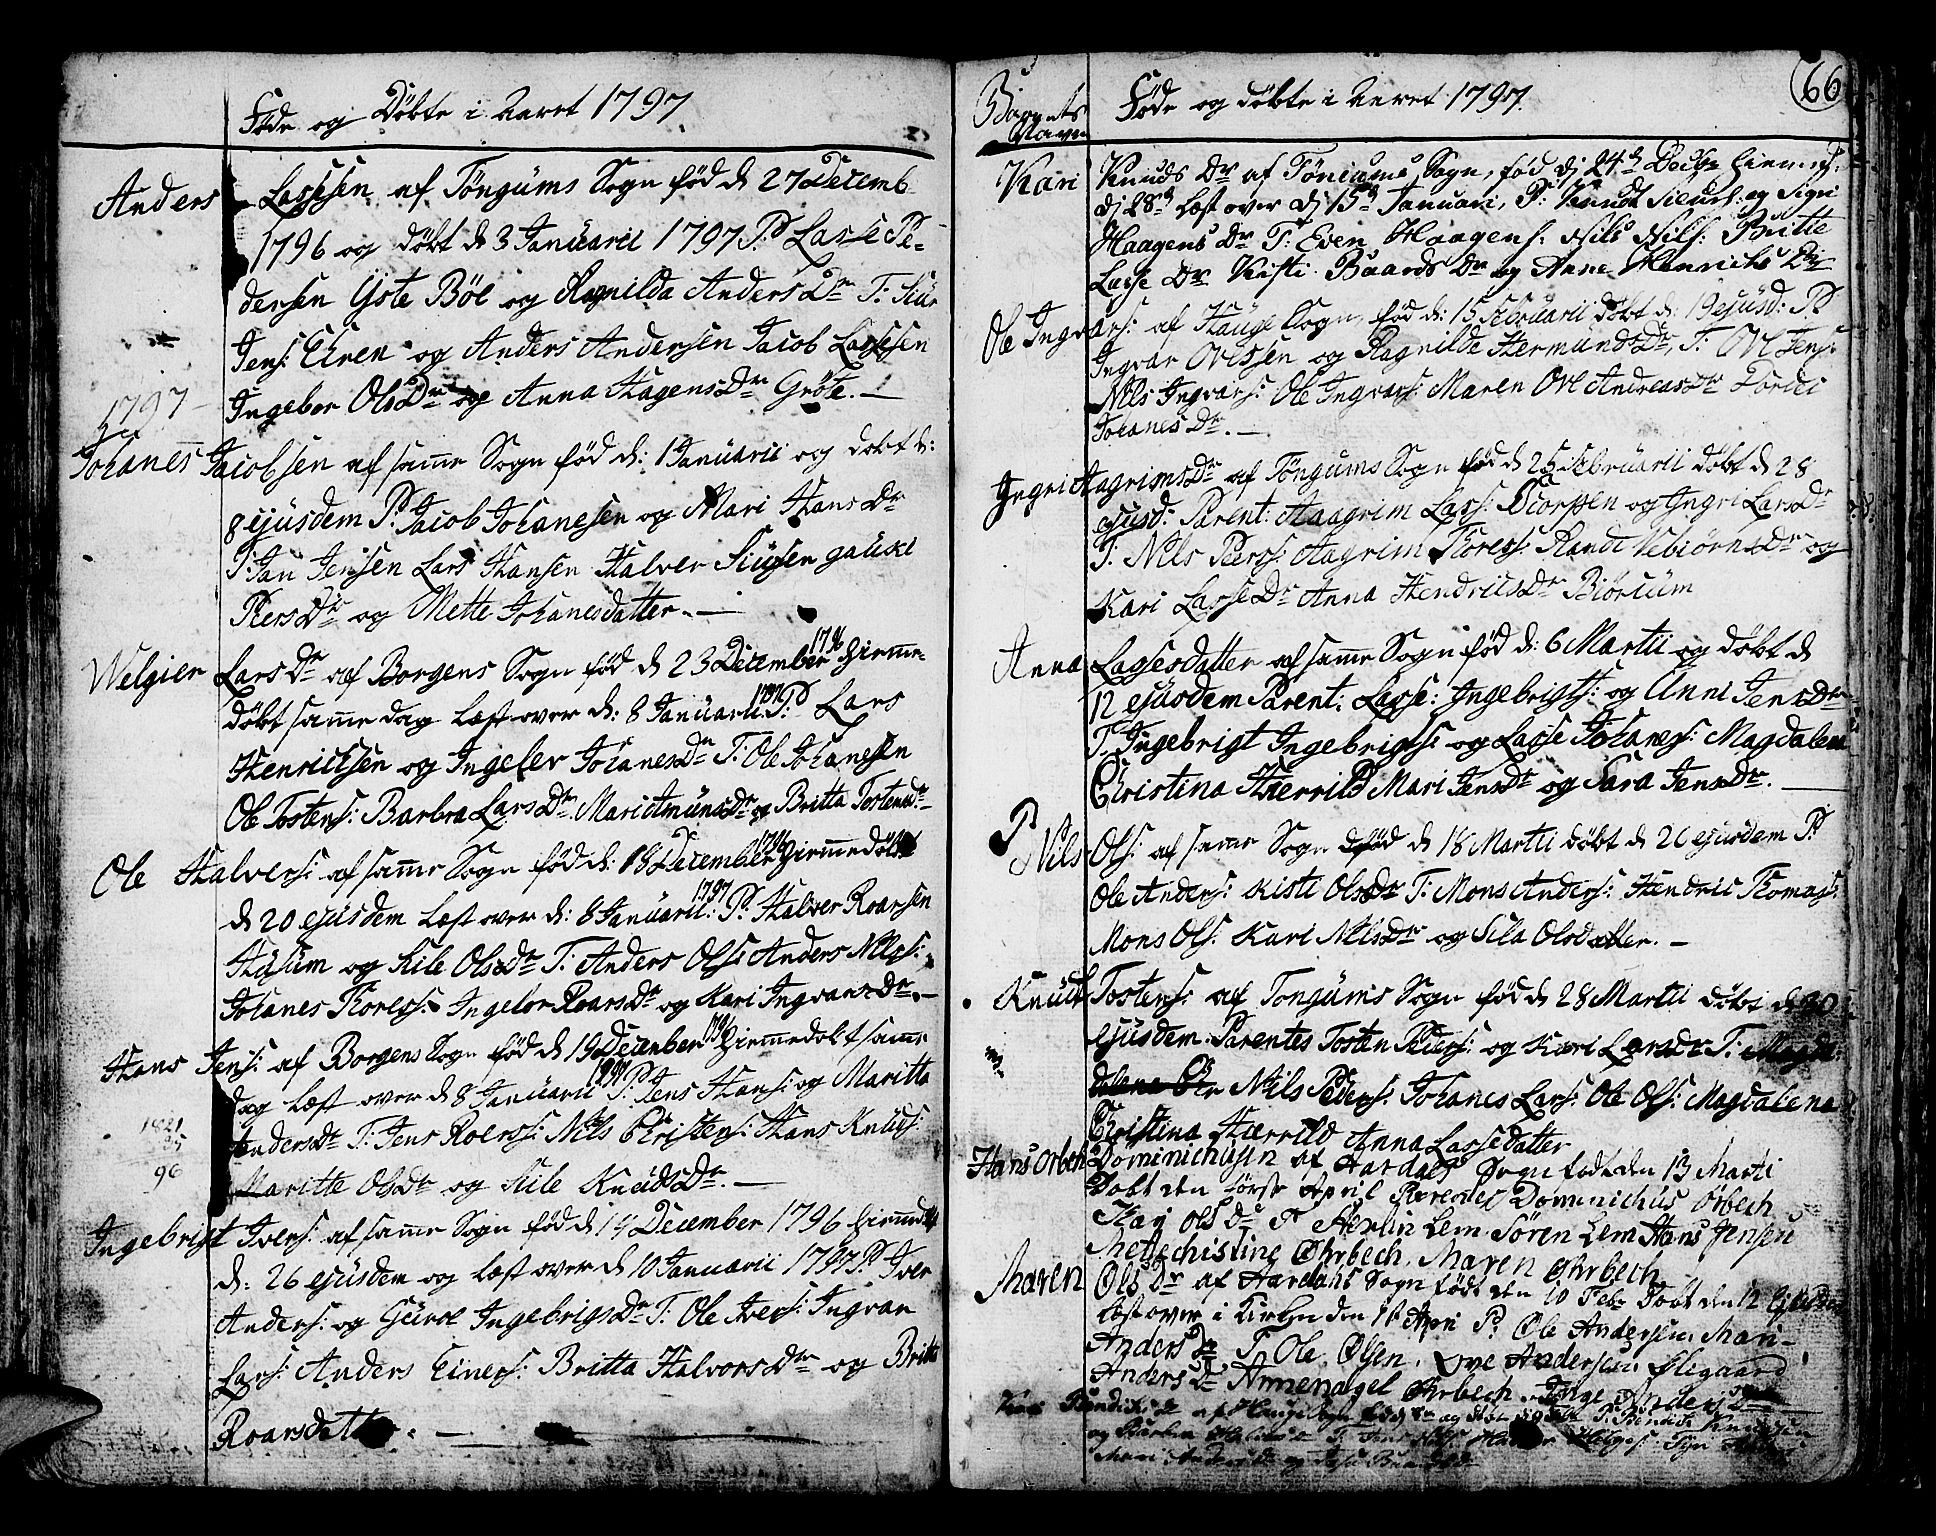 Föde og Döbte i Aaret 1797
Anders Lassesen af Töngums Sogn föd d 27 Decemb.
1796 og döbt d 3 Januarii 1797 P: Lasse Pe-
dersen Göte Böe og Ragnilda Anders Dr T: Siur
Jens: Eiren og Anders Andersen Jacob Lassesen
Ingebor Ols Dr og Anna Hagens Dr Gröte. —
1797
Johanes Jacobsen af samme Sogn föd d: 1 Januarii og dobt d:
8 ejusdem P: Jacob Johanesen og Mari Hans Dr
T: Jan Jensen Lars Hansen Halver
Peers Dr og Mette Johanesdatter. —
Welgier Lars Dr af Borgens Sogn föd d 23 December 1796 hiemme
döbt samme dag læst over d: 8 Januarii 1797 P: Lars
Henrichsen og Ingeler Johanes Dr T: Ole Johanesen
Ole Tostens: Barbra Lars Dr Mari Amunds Dr og Britta Tostens Dr —
Ole Halvers: af samme Sogn föd d: 18 December 1796 hiemmedöbt
d 20 ejusdem læst over d: 8 Januarii 1797: P: Halver Roarsen
Husum og Sile Ols Dr T: Anders Ols: Anders Nils:
Johanes Thores: Ingebor Roars Dr og Kari Ingvars Dr. —
Hans Jens: af Borgens Sogn föd d 19 December 1796 hiemmedobt samme
dag læst over d 8 Januarii 1797 P: Jens Hans: og Maritta
1821
Anders Dr T: Jens Roers: Nils Christens: Hans Knuds:
96
Maritte Ols Dr og Sile Knuds Dr. —
Ingebrigt Ivers: af samme Sogn föd d 14 December 1796 hiemmedöbt
d: 26 ejusdem og læst over d 10 Januarii 1797 P: Iver
Anders: og Guroe Ingebrigs Dr T: Ole Ivers: Ingvar
Lars: Anders Einers: Britta Halvors Dr og Britta
Roarsdatter. —
66
Barnets Navn
Föde og döbte i Aaret 1797.
Kari Knuds Dr af Tönjums Sogn, föd dj 24d Decbr hiemmed:
dj 28d læst over dj 15d Januari, P: Knudt SiEurs: og Sigri
Haagens Dr T: Even Haagens: Nils Nils: Britte
Lasse Dr Kisti Baards Dr og Anne Henrichs Dr
Ole Ingvars: af Hauge Sogn, föd d: 15 Februarii döbt d: 19 ejusd: P:
Ingvar Olssen og Ragnilde Hermunds Dr, T: Ole Jens:
Nils Ingvars: Ole Ingvars: Maren Ove Andreas Dr Dordei
Johanes Dr. —
Ingri Aagrims Dr af Töngums Sogn föd d 25 Februarii döbt d 28
ejusd: Parent: Aaagrim Lass: Skorpen og Ingri Lars Dr
T: Nils Peers: Aagrim Thores: Randi Vebiörns Dr og
Kari Lasse Dr Anna Hendrics Dr Biörcum
Anna Lassesdatter af samme Sogn föd d: 6 Martii og döbt d
12 ejusdem Parent: Lasse: Ingebrigts: og Anni Jens Dr
T: Ingebrigt Ingebrigts: og Lasse Johanes: Magdalena
Christina Hierrild Mari Jens Dr og Sara Jens Dr. —
P Nils Ols: af samme Sogn föd d 18 Martii döbt d 26 ejusdem P:
Ole Anders: Kisti Ols Dr T: Mons Anders: Hendric Thomas:
Mons Ols: Kari Nils Dr og Sila Olsdatter. —
Knudt Tostens: af Tongums Sogn föd d 28 Martii döbt d 30
ejusdem Parentes Tosten Peders: og Kari Lars Dr T: Magda
dalena Chr Nils Peders: Johanes Lars: Ole Ols: Magdalena
Christina Hierrild Anna Lassedatter
Hans Orbeh Dominichusen af Aardals Sogn födt den 13 Marti
Dobt den förste April Parentes Dominichus Orbech
Mari Ols Dr T Herlin Lem Sören Lem Hans Jensen
Mettechistine Ohrbech. Maren Ohrbech
Maren Ols Dr af Aardahls Sogn födt den 10 Febr Dobt den 12 Ejusdem
læst over i Kirken den 16 Apri P. Ole Andersen. Mari
Anders Dr T Ole Olsen. Ove Andersen Ellegaard
Anders Dr Annenagel Ohrbech. Inge Anders Dr
Bendiks Dr af Hauge Sogn föd og döbt P: Bendik Knudsen
og Barbra T: Jens
Mari Anders Dr og